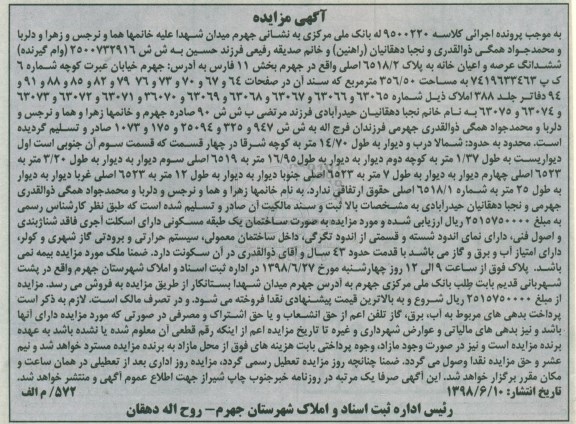 آگهی مزایده
به موجب پرونده اجرائی کلاسه ۹۵۰۰۲۲۰ له بانک ملی مرکزی به نشانی جهرم میدان شهدا علیه خانمها هما و نرجس و زهرا و دلربا
و محمدجواد همگی ذوالقدری و نجبا دهقانیان (راهنین) و خانم صدیقه رفیعی فرزند حسین به ش ش ۲۵۰۰۷۳۲۹۱۶ (وام گیرنده)
ششدانگ عرصه و اعیان خانه به پلاک ۶۵۱۸/۲ اصلی واقع در جهرم بخش ۱۱ فارس به آدرس: جهرم خیابان غیرت کوچه شماره ۶
ک پ ۷۴۱۹۶۳۳۴۶۳ به مساحت ۳۵۶/۵۰ مترمربع که سند آن در صفحات ۶۴ و ۶۷ و ۷۰ و ۷۳ و ۷۶ و ۷۹ و ۸۲ و ۸۵ و ۸۸ و ۹۱ و
۹۴ دفاتر جلد ۳۸۸ املاک ذیل شماره ۶۳۰۶۵ و ۶۳۰۶۶ و ۶۳۰۶۷ و ۶۳۰۶۸ و ۶۳۰۶۹ و ۳۶۰۷۰ و ۶۳۰۷۱ و ۶۳۰۷۲ و ۶۳۰۷۳
و ۶۳۰۷۴ و ۶۳۰۷۵ به نام خانم نجبا دهقانیان حیدرآبادی فرزند مرتضی ب ش ش ۹۰ صادره جهرم و خانمها زهرا و هما و نرجس و
دلربا و محمدجواد همگی ذوالقدری جهرمی فرزندان فرج اله به ش ش ۹۴۷ و ۳۲۵ و ۲۵۰۹۴ و ۱۷۵ و ۱۰۷۳ صادر و تسلیم گردیده
است. محدود به حدود: شمالا درب و دیوار به طول ۱۴/۷۰ متر به کوچه شرقا در چهار قسمت که قسمت سوم آن جنوبی است اول
دیواریست به طول ۱/۳۷ متر به کوچه دوم دیوار به دیوار به طول ۱۶/۹۵ متر به ۶۵۱۹ اصلی سوم دیوار به دیوار به طول ۳/۲۰ متر به
۶۵۲۳ اصلی چهارم دیوار به دیوار به طول ۷ متر به ۶۵۲۳ اصلی جنوبا دیوار به دیوار به طول ۱۲ متر به ۶۵۲۳ اصلی غربا دیوار به دیوار
به طول ۲۵ متر به شماره ۶۵۱۸/۱ اصلی حقوق ارتفاقی ندارد. به نام خانمها زهرا و هما و نرجس و دلربا و محمدجواد همگی ذوالقدری
جهرمی و نجبا دهقانیان حیدرآبادی به مشخصات بالا ثبت و سند مالکیت آن صادر و تسلیم شده است که طبق نظر کارشناس رسمی
به مبلغ ۲۵۱۵۷۵۰۰۰۰ ریال ارزیابی شده و مورد مزایده به صورت ساختمان یک طبقه مسکونی دارای اسکلت آجری فاقد شناژبندی
و اصول فنی، دارای نمای اندود شسته و قسمتی از اندود تگرگی، داخل ساختمان معمولی، سیستم حرارتی و برودتی گاز شهری و کولر،
دارای امتیاز آب و برق و گاز می باشد با قدمت حدود ۴۳ سال و آقای ذوالقدری در آن سکونت دارد. ضمنا ملک مورد مزایده بیمه نمی
باشد. پلاک فوق از ساعت ۹ الی ۱۲ روز چهارشنبه مورخ ۱۳۹۸/۶/۲۷ در اداره ثبت اسناد و املاک شهرستان جهرم واقع در پشت
شهربانی قدیم بابت طلب بانک ملی مرکزی جهرم به آدرس جهرم میدان شهدا بستانکار از طریق مزایده به فروش می رسد. مزایده
از مبلغ ۲۵۱۵۷۵۰۰۰۰ ریال شروع و به بالاترین قیمت پیشنهادی نقدا فروخته می شود، و در تصرف مالک است. لازم به ذکر است
پرداخت بدهی های مربوط به آب، برق، گاز تلفن اعم از حق انشعاب و یا حق اشتراک و مصرفی در صورتی که مورد مزایده دارای آنها
باشد و نیز بدهی های مالیاتی و عوارض شهرداری و غیره تا تاریخ مزایده اعم از اینکه رقم قطعی آن معلوم شده یا نشده باشد به عهده
برنده مزایده است و نیز در صورت وجود مازاد، وجوه پرداختی بابت هزینه های فوق از محل مازاد به برنده مزایده مسترد خواهد شد و نیم
عشر و حق مزایده نقدا وصول می گردد. ضمنا چنانچه روز مزایده تعطیل رسمی گردد، مزایده روز اداری بعد از تعطیلی در همان ساعت و
مکان مقرر برگزار خواهد شد. این آگهی صرفا یک مرتبه در روزنامه خبرجنوب چاپ شیراز جهت اطلاع عموم آگهی و منتشر خواهد شد.
تاریخ انتشار: ۱۳۹۸/۶/۱۰
۵۷۲/ م الف
رئیس اداره ثبت اسناد و املاک شهرستان جهرم– روح اله دهقان